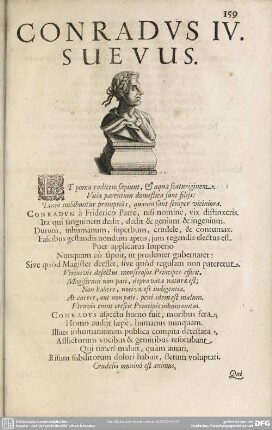 159
CONRADVS IV.
SUEVUS.
UT poma radicem sapiunt, & aqua scaturiginem,
Vitia parentum domestica sunt filiis:
Tanto imbibuntur promptius, quanto sunt semper viciniora.
CONRADUM à Friderico Patre, nisi nomine, vix distinxeris.
Ita qui sanguinem dedit, dedit & genium & ingenium.
Durum, inhumanum, superbum, crudele, & contumax.
Fascibus gestandis nondum aptus, jam regendis electus est.
Puer applicatus Imperio
Nunquam eò sapuit, ut prudenter gubernaret:
Sive quòd Magister deesset, sive quòd regulam non pateretur.
Utriusvis defectus monstrosos Principes efficit.
Magistrum non pati, depravata natura est;
Non habere, nociva est indigentia.
At carere, aut non pati, penè idem est malum.
CONRADUS aspectu homo fuit, moribus fera,
Homo audiit sæpè, humanus nunquam.
Illius inhumanitatem publica compita detestata,
Afflictorum vocibus & gemitibus resonabant,
Qui timeri maluit, quàm amari,
Risum subditorum dolori habuit, fletum voluptati.
Crudelis omnino est animus,
Qui